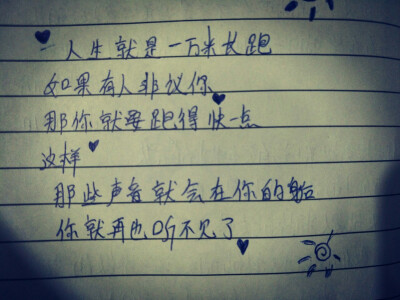 人生就是一万米长跑
如果有人非议你
那你就要跑得快一点
这样
那些声音就会在你的身后
你就再也听不见了